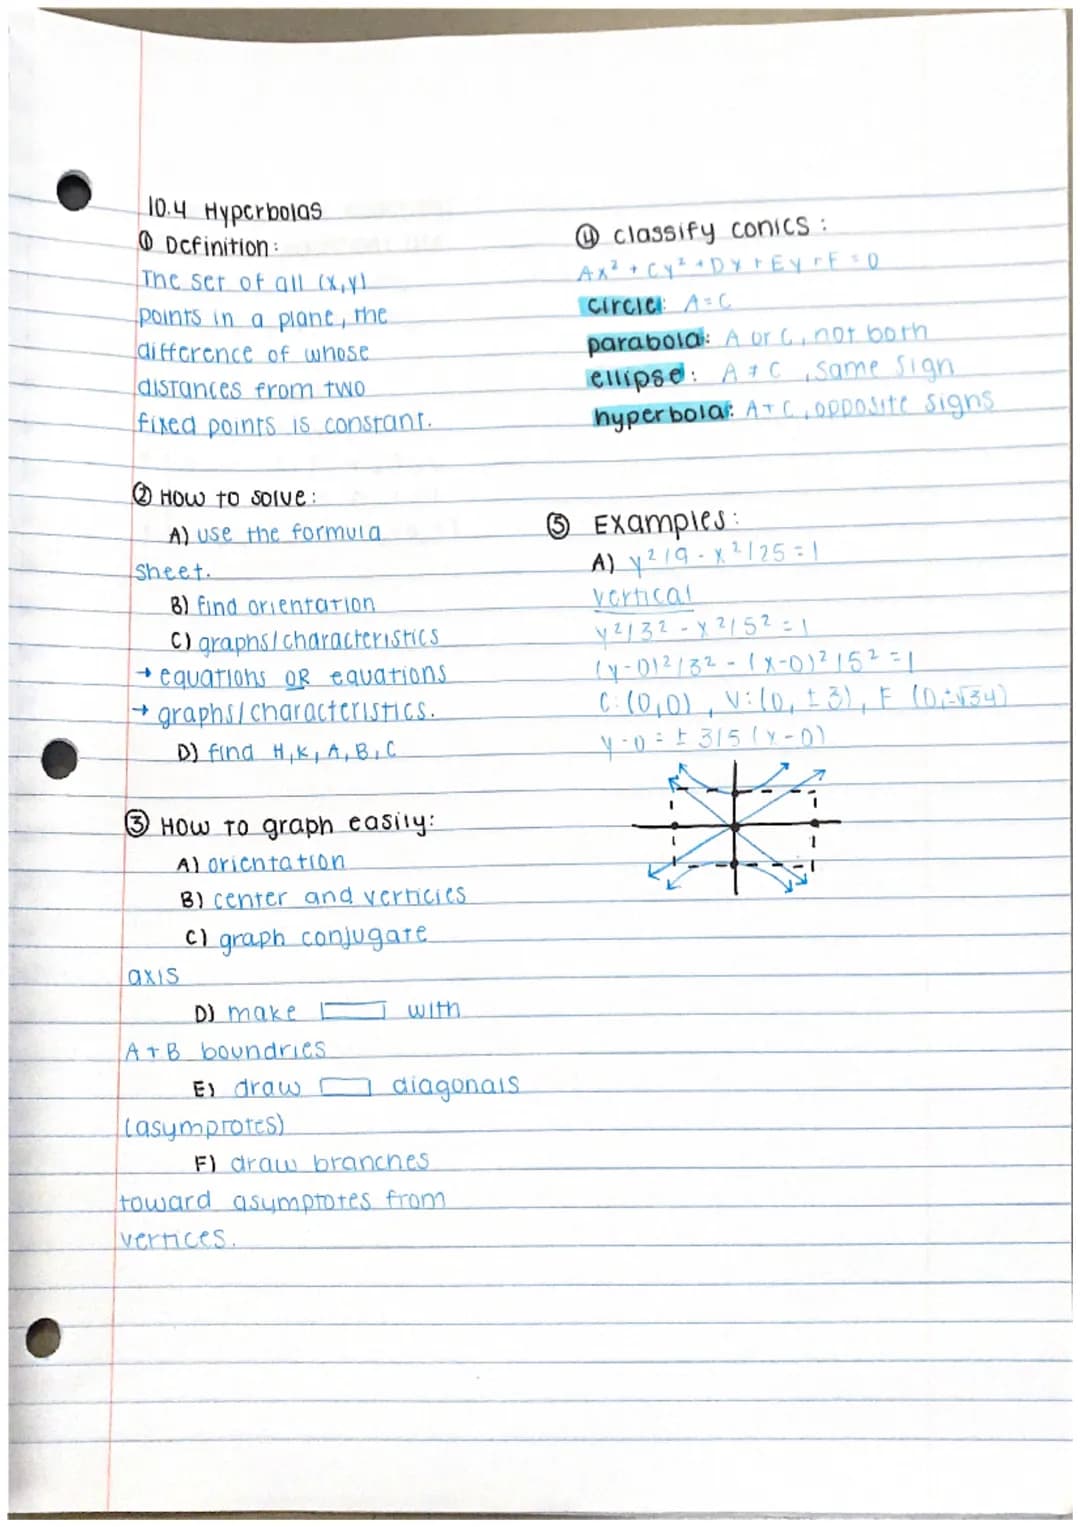 10.4 Hyperbolas
① Definition:
The set of all (x,y)
points in a plane, the
difference of whose
distances from two
fixed points is constant.
② How to solve:
A) use the formula
sheet.
B) find orientation
C) graphs/characteristics
→ equations OR equations
→ graphs/characteristics.
D) find H, K, A, B, C
③ How to graph easily:
A) orientation
B) center and verticies
C) graph conjugate
axis
D) make ▭ with
A+B boundries
E) draw ▭ diagonals
(asymptotes)
F) draw branches
toward asymptotes from
vertices.
④ classify conics:
Ax² + Cy² + Dx + Ey + F = 0
circle: A=C
parabola: A or C, not both
ellipse: A ≠ C, same sign
hyperbola: A+C, opposite signs
⑤ Examples:
A) y²/9 - x²/25 = 1
vertical
y²/3² - x²/5² = 1
(y-0)²/3² - (x-0)²/5² = 1
C: (0,0), V: (0, ±3), F (0,±√34)
y-0 = ± 3/5 (x-0)